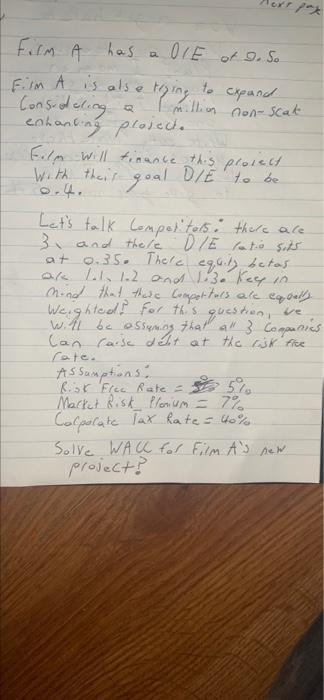 Next page
Firm A has a D/E of 0.50
Firm A is also trying to expand
Considering a 1 million non-scale
enhancing project.
Firm will finance this project
With their goal D/E to be
0.4.
Let's talk Competitors: there are
3, and there D/E ratio sits
at 0.35. There equity betas
are 1.1, 1.2 and 1.3. Key in
mind that these Competitors are equally
Weighted! For this question, we
will be assuming that all 3 Companies
Can raise debt at the risk free
rate.
Assumptions:
Risk Free Rate = 5%
Market Risk Premium = 7%
Corporate Tax Rate = 40%
Solve WACC for Firm A's new
project?